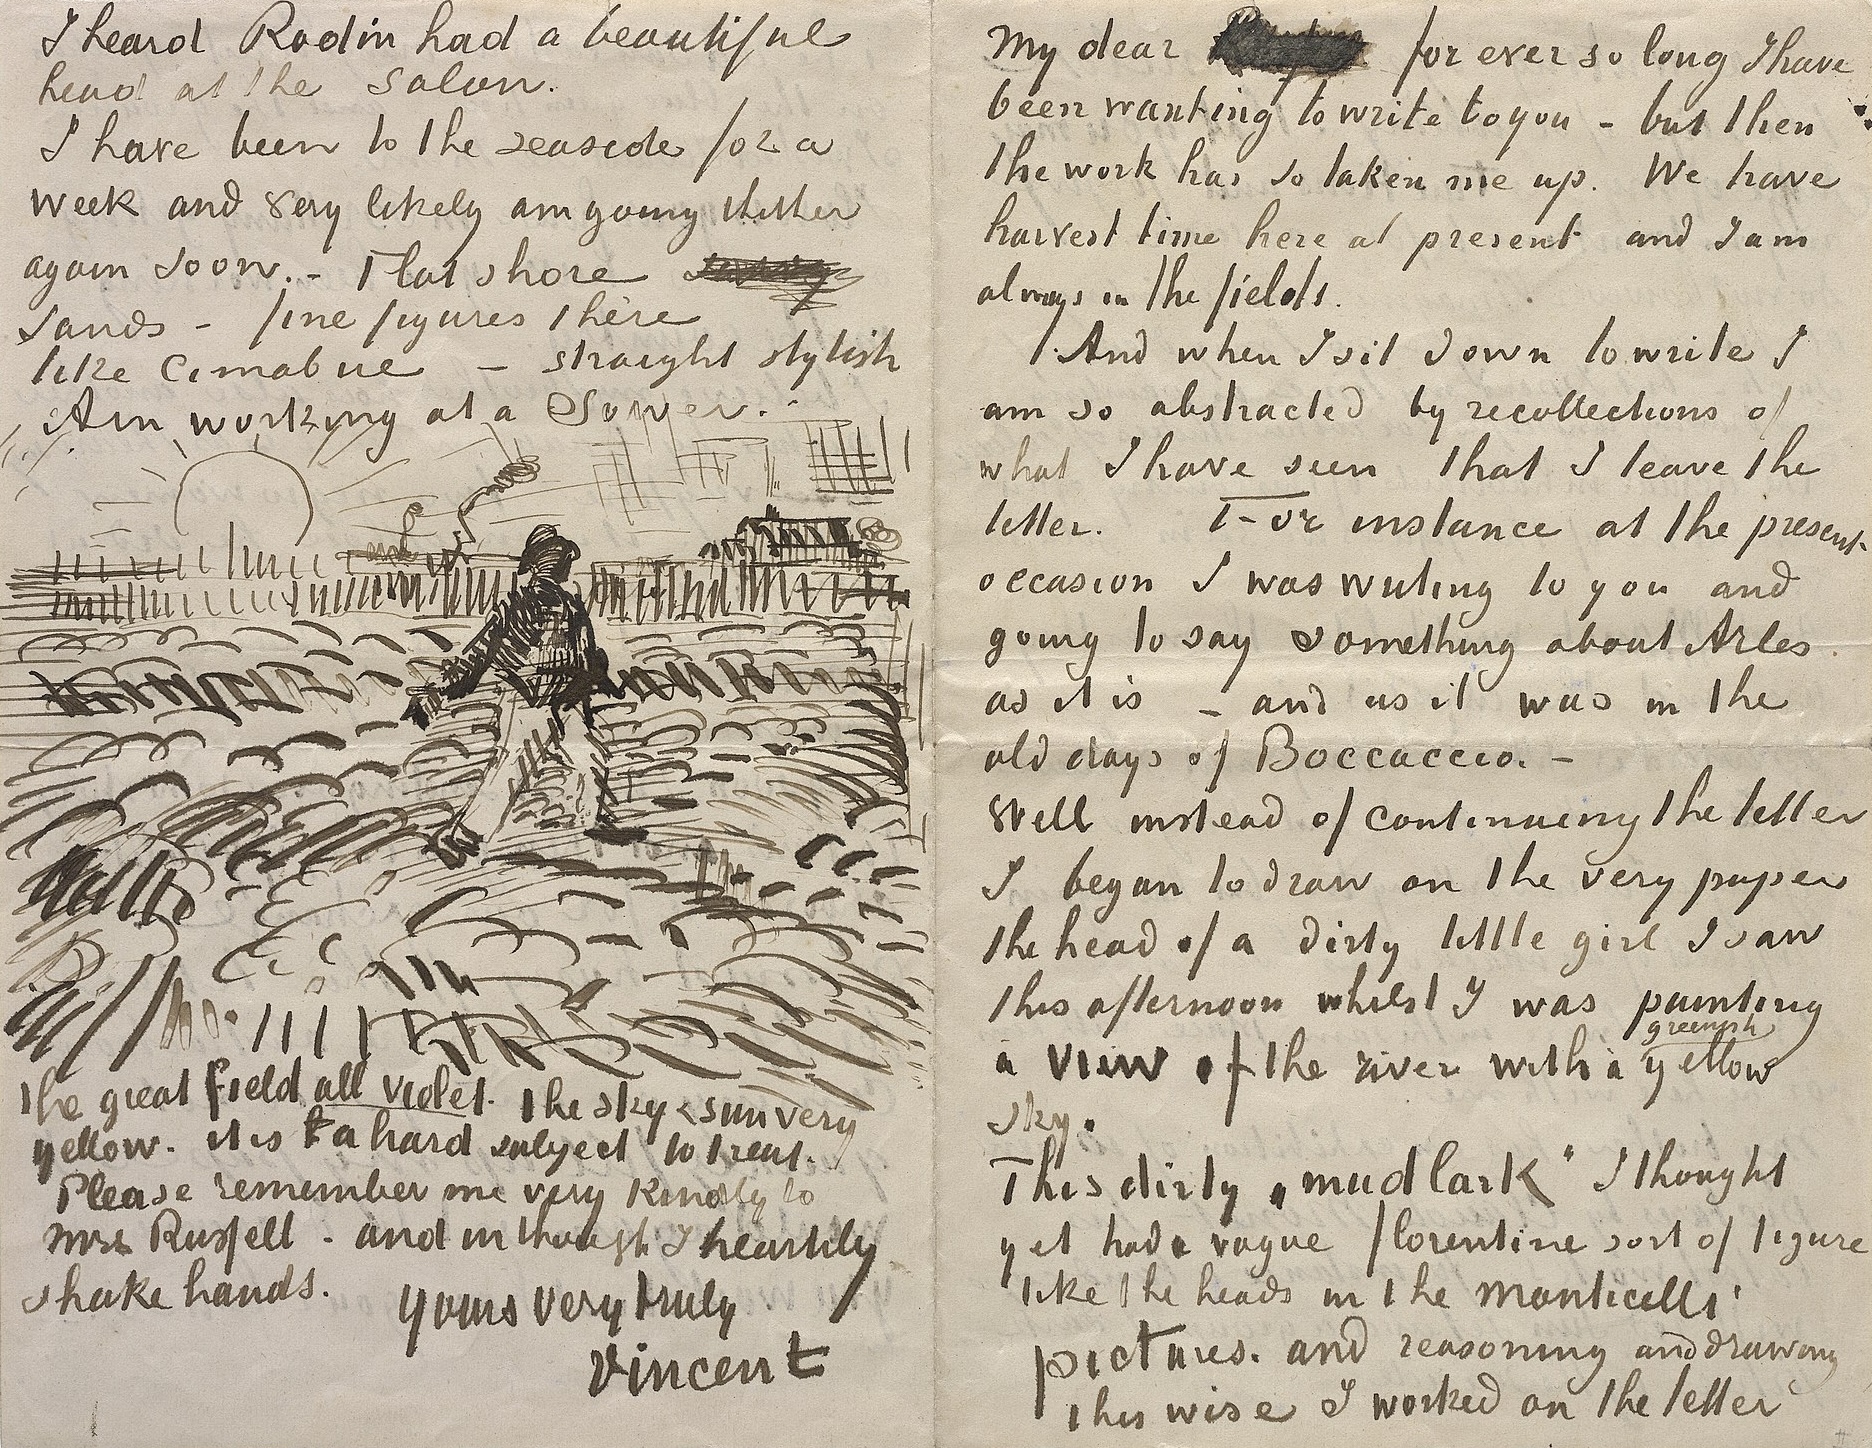 I heard Rodin had a beautiful
head at the Salon.
I have been to the seaside for a
week and very likely am going thither
again soon. - Flat shore
sands - fine figures there
like Cimabue - straight stylish
Am working at a Sower.
the great field all violet. the sky & sun very
yellow. it is a hard subject to treat.
Please remember me very kindly to
mrs Russell . and in thought I heartily
shake hands.
yours very truly
Vincent
My dear for ever so long I have
been wanting to write to you - but then
the work has so taken me up. We have
harvest time here at present and I am
always in the fields.
And when I sit down to write I
am so abstracted by recollections of
what I have seen that I leave the
letter. For instance at the present
occasion I was writing to you and
going to say something about Arles
as it is - and as it was in the
old days of Boccaccio. -
Well instead of continuing the letter
I began to draw on the very paper
the head of a dirty little girl I saw
this afternoon whilst I was painting
greenish
a view of the river with a yellow
sky.
This dirty „mudlark“ I thought
yet had a vague florentine sort of figure
like the heads in the monticelli
pictures. and reasoning and drawing
this wise I worked on the letter